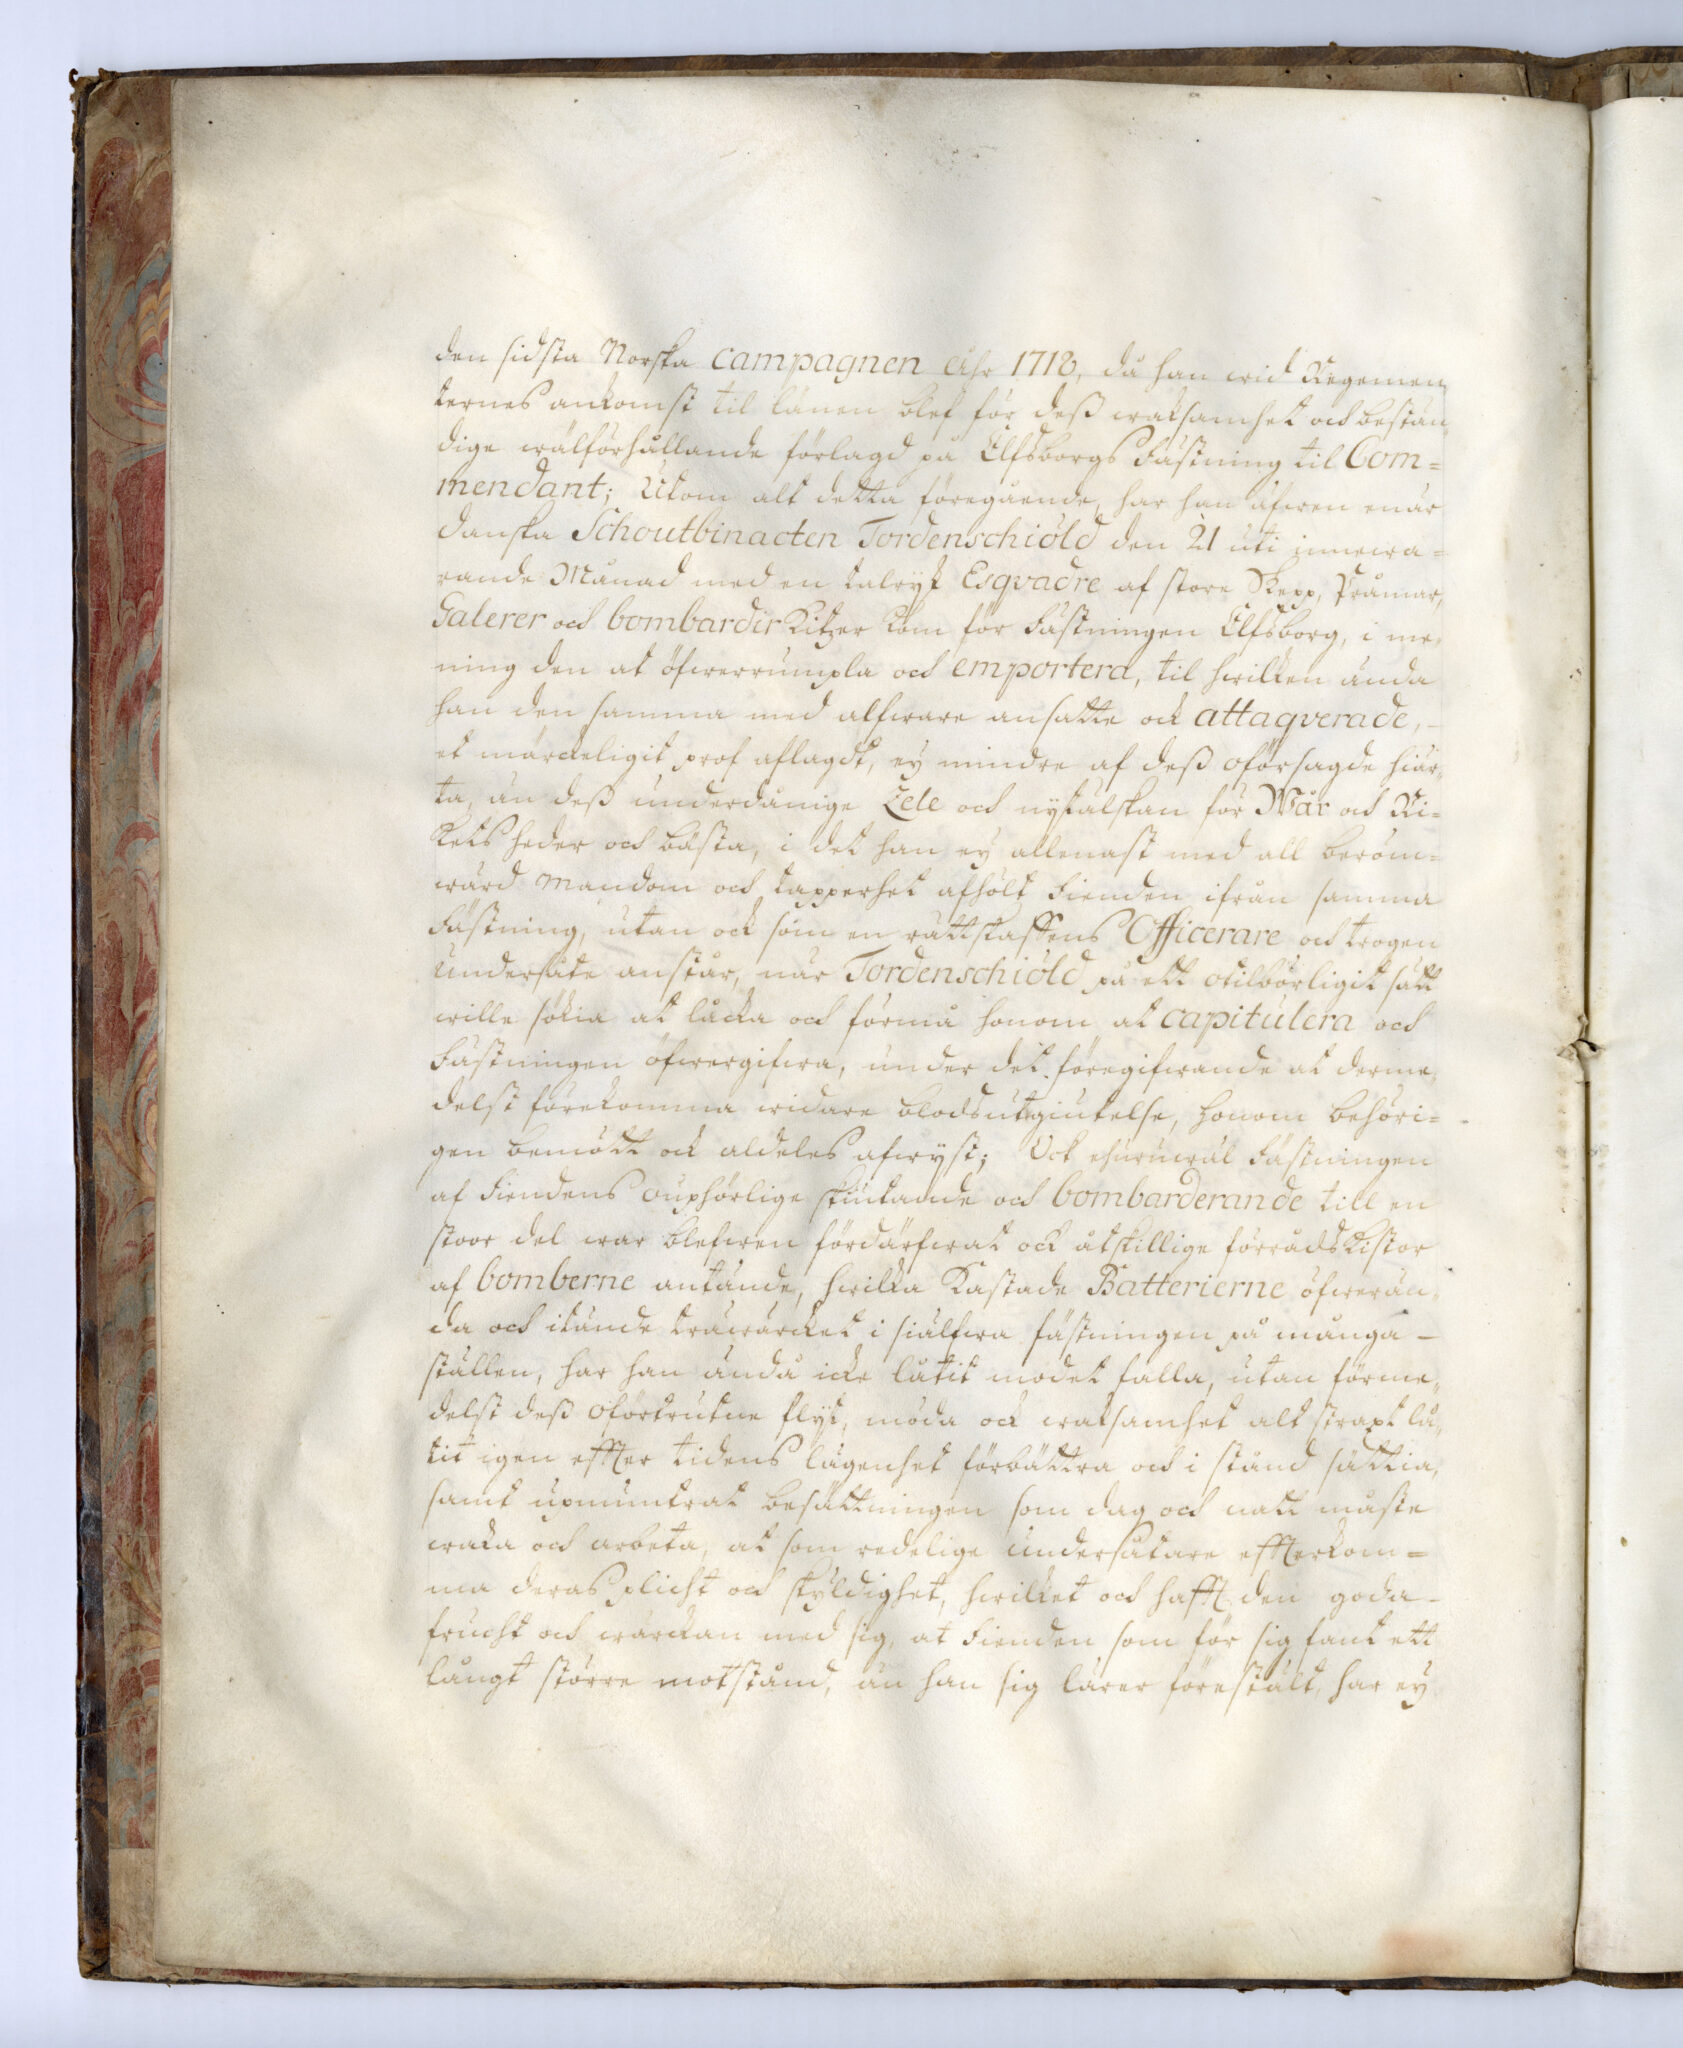 den sidsta Norska campagnen Åhr 1718, då han wid Regemen„
ternes ankomst til länen blef för deß waksamhet och bestän„
dige wälförhållande förlagd på Elfsborgs Fästning til Com=
mendant; Utom alt detta föregående, har han äfwen enär
danska Schoutbinacten Tordenschiöld den 21 uti innewa=
rande Månad med en talryk Esqvadre af store Skepp, Pråmar,
Galerer och bombardir Kitzer kom för Fästningen Elfsborg, i me„
ning den at öfwerrumpla och emportera, til hwilken ända
han den samma med alfware ansatte ock attaqverade, –
et märckeligit prof aflagdt, ey mindre af deß oförsagde hiär„
ta, än deß underdånige Zele och nijtälskan för Wår och Ri=
kets heder och bästa, i det han ey allenast med all beröm=
wärd mandom och tapperhet afhölt Fienden ifrån samma
Fästning, utan ock som en rättskaffens Officerare och trogen
Undersåte anstår, när Tordenschiöld på ett otilbörligit sätt
wille sökia at låcka och förmå honom at capitulera och
Fästningen öfwergifwa, under det föregifwande at derme„
delst förekomma widare blodsutgiutelse, honom behöri=
gen bemött ock aldeles afwyst; Ock ehuruwäl Fästningen
af Fiendens ouphörlige skiutande och bombarderande till en
stoor del war blefwen fördärfwat ock åtskillige förråds Kistor
af bomberne antände, hwilka Kastade Batterierne öfwerän„
da och itände träwärcket i siälfwa fästningen på många –
ställen, har han ändå icke låtit modet falla, utan förme„
delst deß oförtrutne flijt, möda ock waksamhet alt straxt lå„
tit igen effter tidens lägenhet förbättra och i stånd sättia,
samt upmuntrat besättningen som dag och natt måste
waka och arbeta, at som redelige Undersåtare effterkom=
ma deras plicht och skyldighet, hwilket och hafft den goda –
frucht och wärckan med sig, at Fienden som för sig fant ett
långt större motstånd, än han sig lärer förestält, har ey